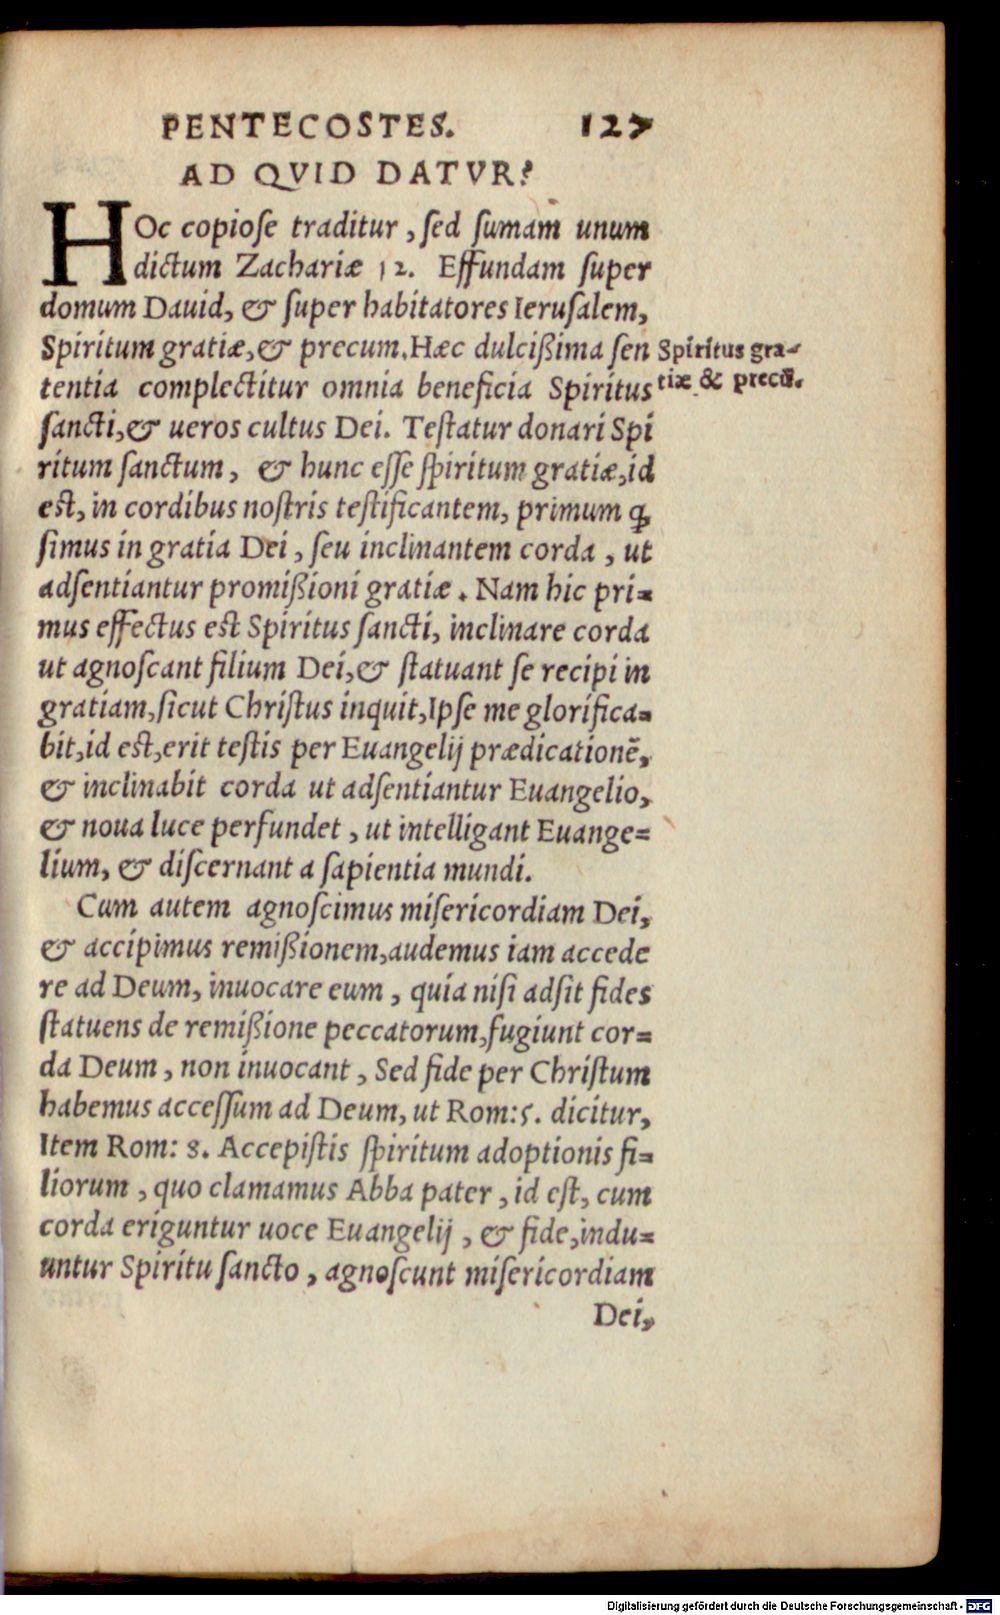 PENTECOSTES. 127
AD QVID DATVR?
HOc copioſe traditur, ſed ſumam unum
dictum Zachariæ 12. Effundam ſuper
domum Dauid, & ſuper habitatores Ieruſalem,
Spiritum gratiæ, & precum. Hæc dulcißima ſen
tentia complectitur omnia beneficia Spiritus
ſancti, & ueros cultus Dei. Teſtatur donari Spi
ritum ſanctum, & hunc eſſe ſpiritum gratiæ, id
eſt, in cordibus noſtris teſtificantem, primum ꝙ
ſimus in gratia Dei, ſeu inclinantem corda, ut
adſentiantur promißioni gratiæ. Nam hic pri=
mus effectus eſt Spiritus ſancti, inclinare corda
ut agnoſcant filium Dei, & ſtatuant ſe recipi in
gratiam, ſicut Chriſtus inquit, Ipſe me glorifica=
bit, id eſt, erit teſtis per Euangelij prædicationē,
& inclinabit corda ut adſentiantur Euangelio,
& noua luce perfundet, ut intelligant Euange=
lium, & diſcernant a ſapientia mundi.
Cum autem agnoſcimus miſericordiam Dei,
& accipimus remißionem, audemus iam accede
re ad Deum, inuocare eum, quia niſi adſit fides
ſtatuens de remißione peccatorum, fugiunt cor=
da Deum, non inuocant, Sed fide per Chriſtum
habemus acceſſum ad Deum, ut Rom: 5. dicitur,
Item Rom: 8. Accepiſtis ſpiritum adoptionis fi=
liorum, quo clamamus Abba pater, id eſt, cum
corda eriguntur uoce Euangelij, & fide, indu=
untur Spiritu ſancto, agnoſcunt miſericordiam
Dei,
Spiritus gra-
tiæ & precū.
Digitalisierung gefördert durch die Deutsche Forschungsgemeinschaft - DFG